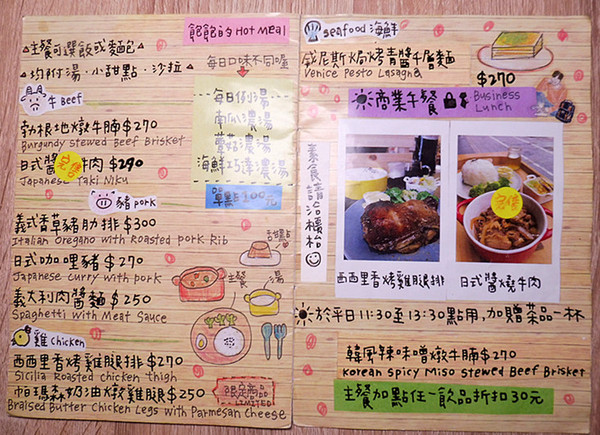 飽飽的Hot Meal
主餐可選飯或麵包
均附湯·小甜點·沙拉
每日口味不同喔
每日例湯
南瓜濃湯
蘑菇濃湯
海鮮巧達濃湯
單點100元
牛Beef
勃根地燉牛腩$270
Burgundy stewed Beef Brisket
日式醬燒牛肉 $290
Japanese Yaki Niku
豬pork
義式香草豬肋排$300
Italian Oregano with Roasted pork Rib
日式咖哩豬$270
Japanese curry with pork
義大利肉醬麵$250
Spaghetti with Meat Sauce
甜點
主餐
湯
雞chicken
西西里香烤雞腿排$270
Sicilia Roasted chicken thigh
帕瑪森奶油燉雞腿$250
Braised Butter Chicken Legs with Parmesan Cheese
限定商品
LIMITED
seafood海鮮
威尼斯焗烤青醬千層麵
Venice Pesto Lasagna
$270
商業午餐
Business
Lunch
素食請洽櫃枱
西西里香烤雞腿排
日式醬燒牛肉
於平日11:30至13:30點用,加贈茶品一杯
韓風辣味噌燉牛腩$270
korean spicy Miso stewed Beef Brisket
主餐加點任一飲品折扣30元